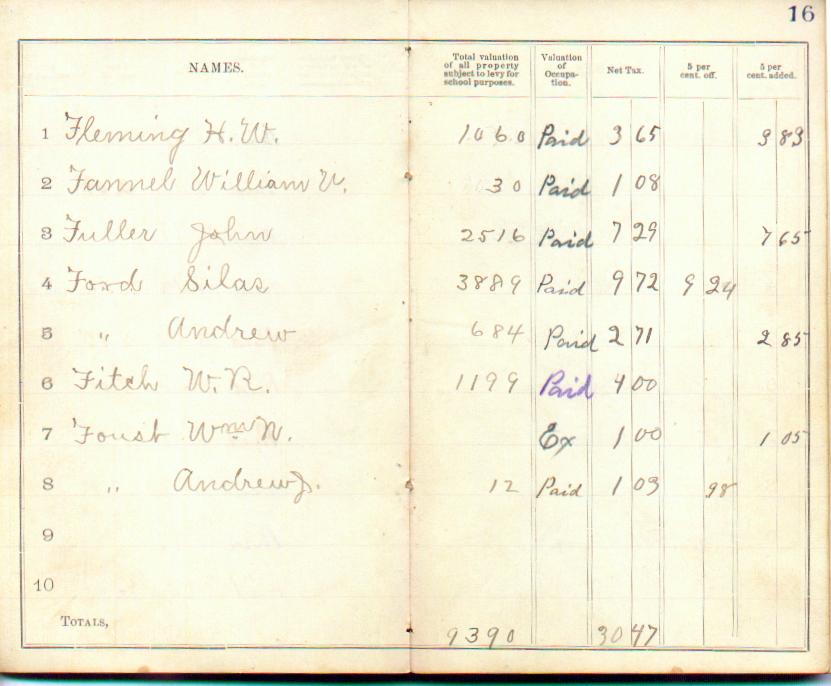 16
NAMES. Total valuation of all property subject to levy for school purposes. Valuation of Occupa-tion. Net Tax. 5 per cent. off. 5 per cent. added.
1 Fleming H. W. 1060 Paid 3 65 3 83
2 Fannel William V. 30 Paid 1 08
3 Fuller John 2516 Paid 7 29 7 65
4 Ford Silas 3889 Paid 9 72 9 24
5 " Andrew 684 Paid 2 71 2 85
6 Fitch W. R. 1199 Paid 4 00
7 Foust Wm N. Ex 1 00 1 05
8 " Andrew J. 12 Paid 1 03 98
9
10
TOTALS, 9390 30 47